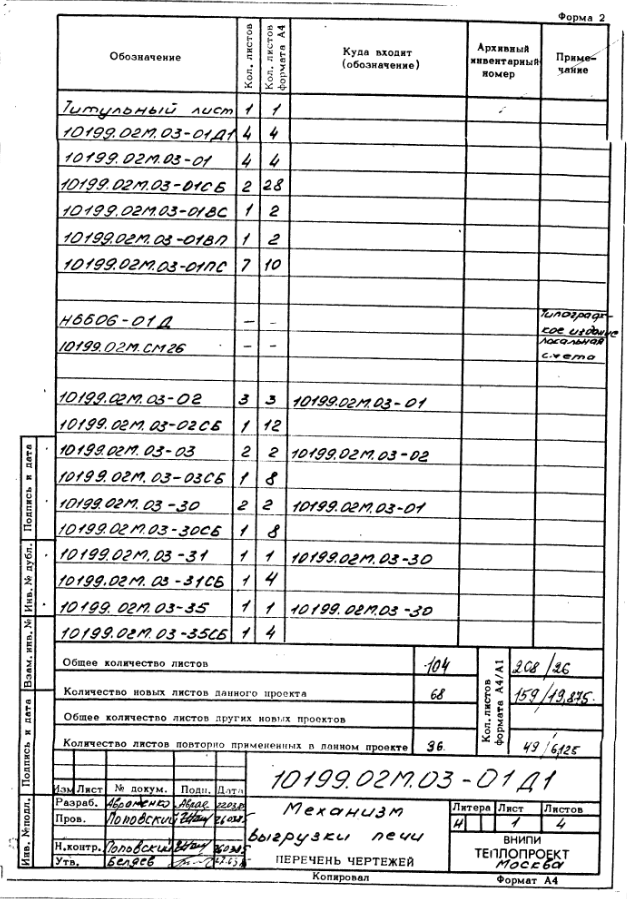 Форма 2
Обозначение Кол. листов Кол. листов формата А4 Куда входит (обозначение) Архивный инвентарный номер Приме-чание
Титульный лист 1 1
10199.02М.03-01Д1 4 4
10199.02М.03-01 4 4
10199.02М.03-01СБ 2 28
10199.02М.03-01ВС 1 2
10199.02М.03-01ВП 1 2
10199.02М.03-01ПС 7 10
Типограф-
Н6606-01Д – – кое издание
10199.02М.СМ26 – – локальная
смета
10199.02М.03-02 3 3 10199.02М.03-01
10199.02М.03-02СБ 1 12
10199.02М.03-03 2 2 10199.02М.03-02
10199.02М.03-03СБ 1 8
10199.02М.03-30 2 2 10199.02М.03-01
10199.02М.03-30СБ 1 8
10199.02М.03-31 1 1 10199.02М.03-30
10199.02М.03-31СБ 1 4
10199.02М.03-35 1 1 10199.02М.03-30
10199.02М.03-35СБ 1 4
Общее количество листов 104 Кол. листов формата А4/А1 208/26
Количество новых листов данного проекта 68 159/19,875
Общее количество листов других новых проектов
Количество листов повторно примененных в данном проекте 36 49/6,125
Подпись и дата
Инв. № дубл.
Взам. инв. №
Подпись и дата
Инв. №подл.
10199.02М.03-01Д1
Изм Лист № докум. Подп. Дата
Разраб. Авраменко
Пров. Поповский
Н.контр. Поповский
Утв. Беляев
Механизм
выгрузки печи
ПЕРЕЧЕНЬ ЧЕРТЕЖЕЙ
Литера Лист Листов
И 1 4
ВНИПИ
ТЕПЛОПРОЕКТ
Москва
Копировал Формат А4